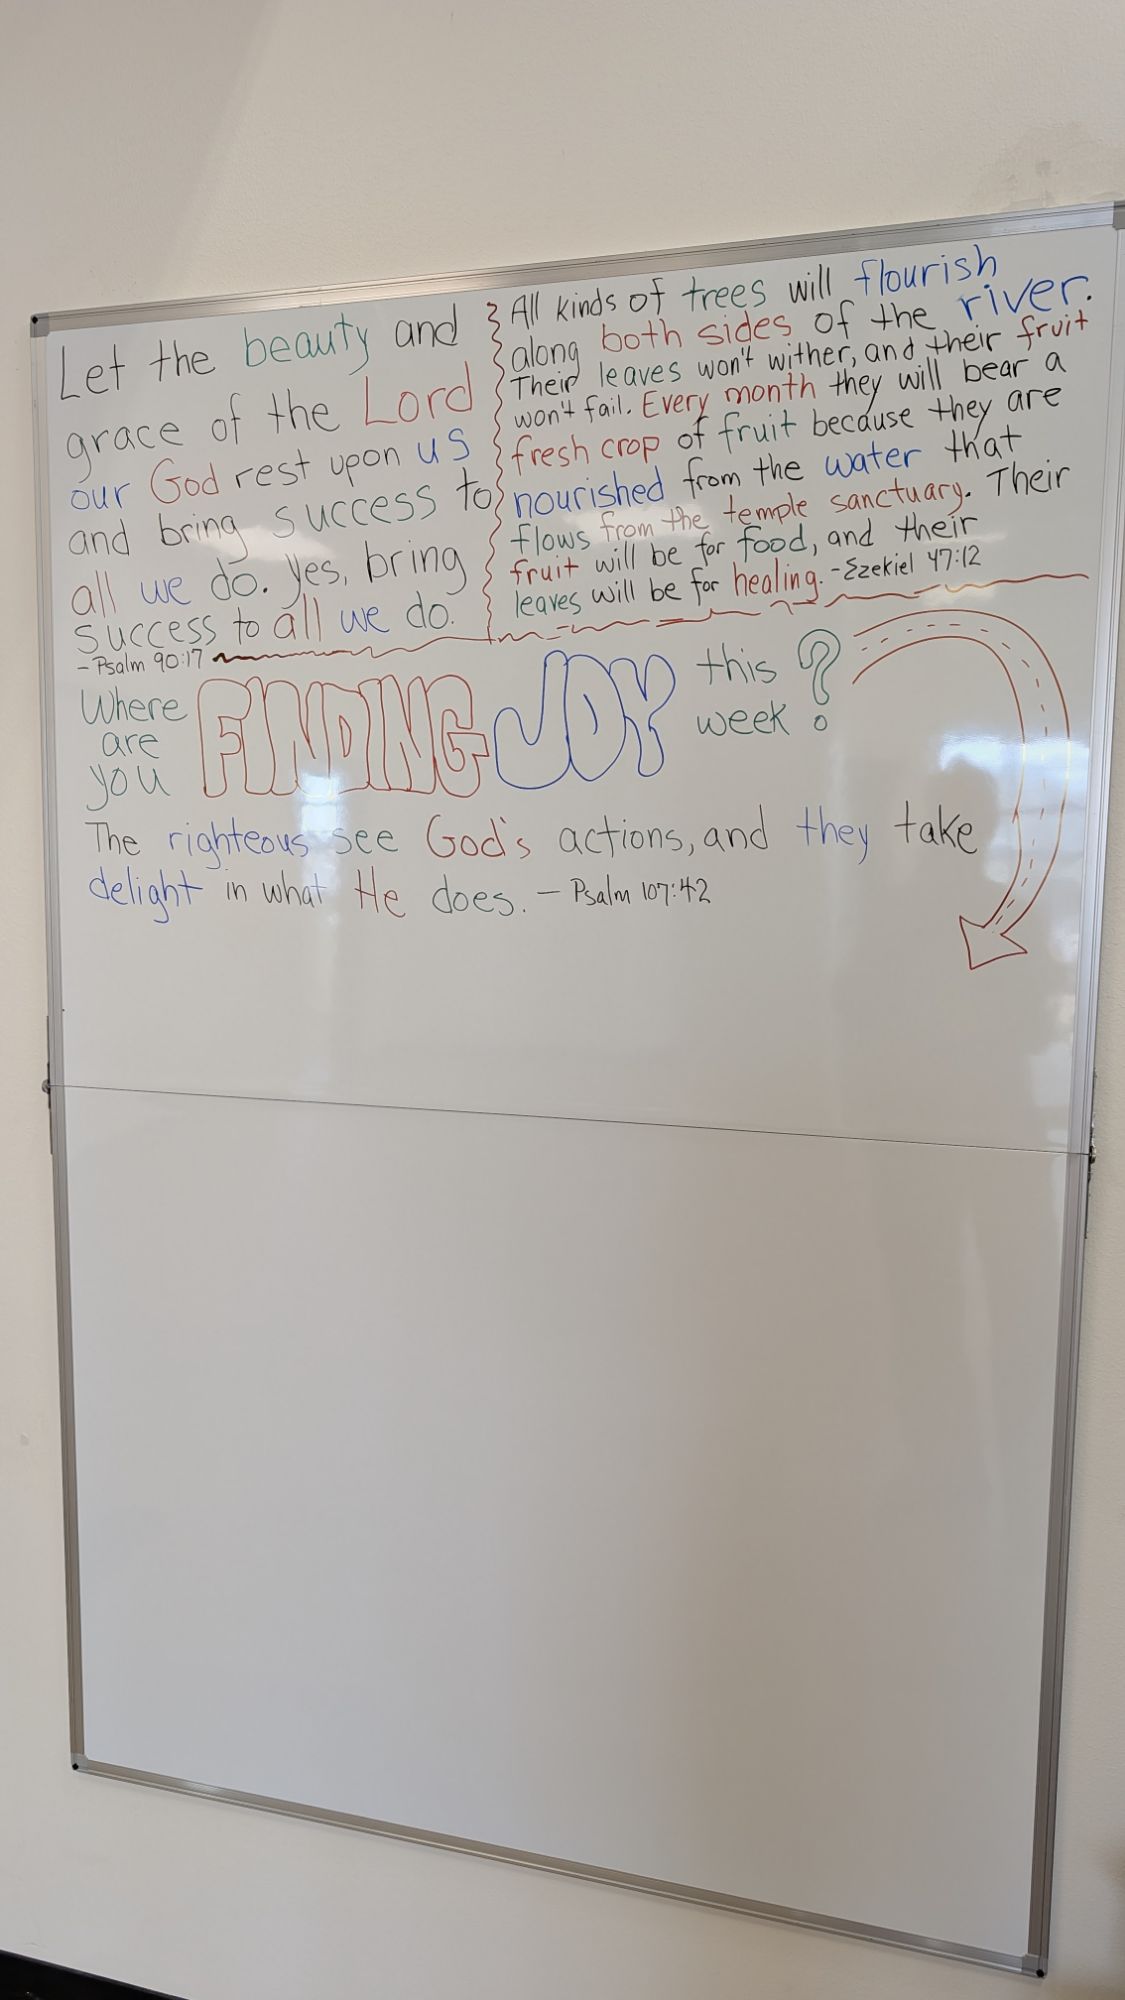 Let the beauty and
grace of the Lord
our God rest upon us
and bring success to
all we do. Yes, bring
success to all we do.
- Psalm 90:17
All kinds of trees will flourish
along both sides of the river.
Their leaves won't wither, and their fruit
won't fail. Every month they will bear a
fresh crop of fruit because they are
nourished from the water that
flows from the temple sanctuary. Their
fruit will be for food, and their
leaves will be for healing. - Ezekiel 47:12
Where are you FINDING JOY this week?
The righteous see God's actions, and they take
delight in what He does. - Psalm 107:42